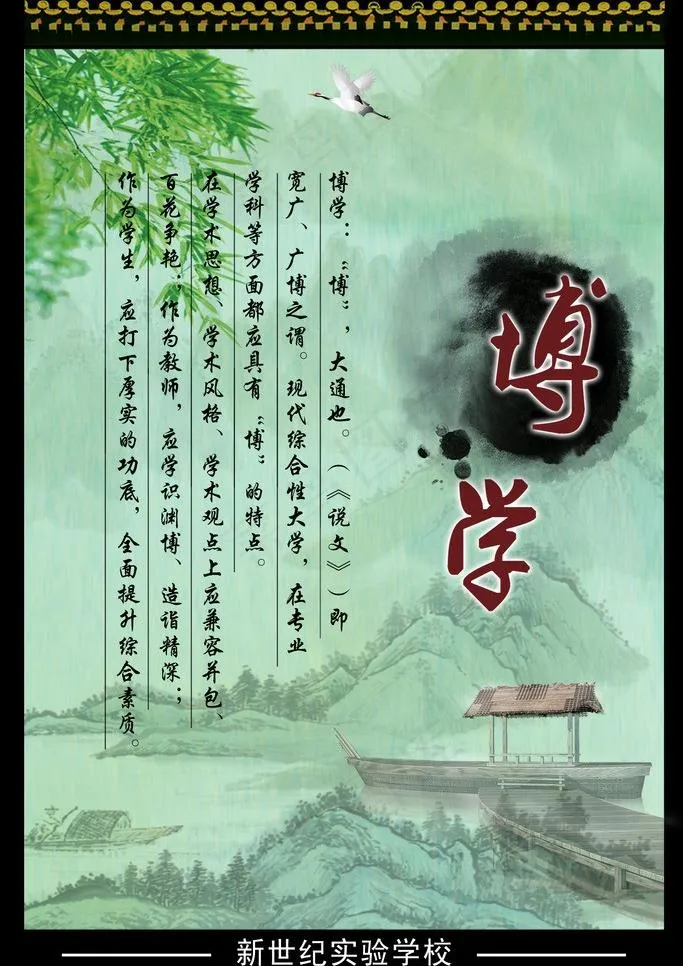 博学
博学：“博”，大通也。（《说文》）即
宽广、广博之谓。现代综合性大学，在专业
学科等方面都应具有“博”的特点。
在学术思想、学术风格、学术观点上应兼容并包、
百花争艳；作为教师，应学识渊博、造诣精深；
作为学生，应打下厚实的功底，全面提升综合素质。
新世纪实验学校